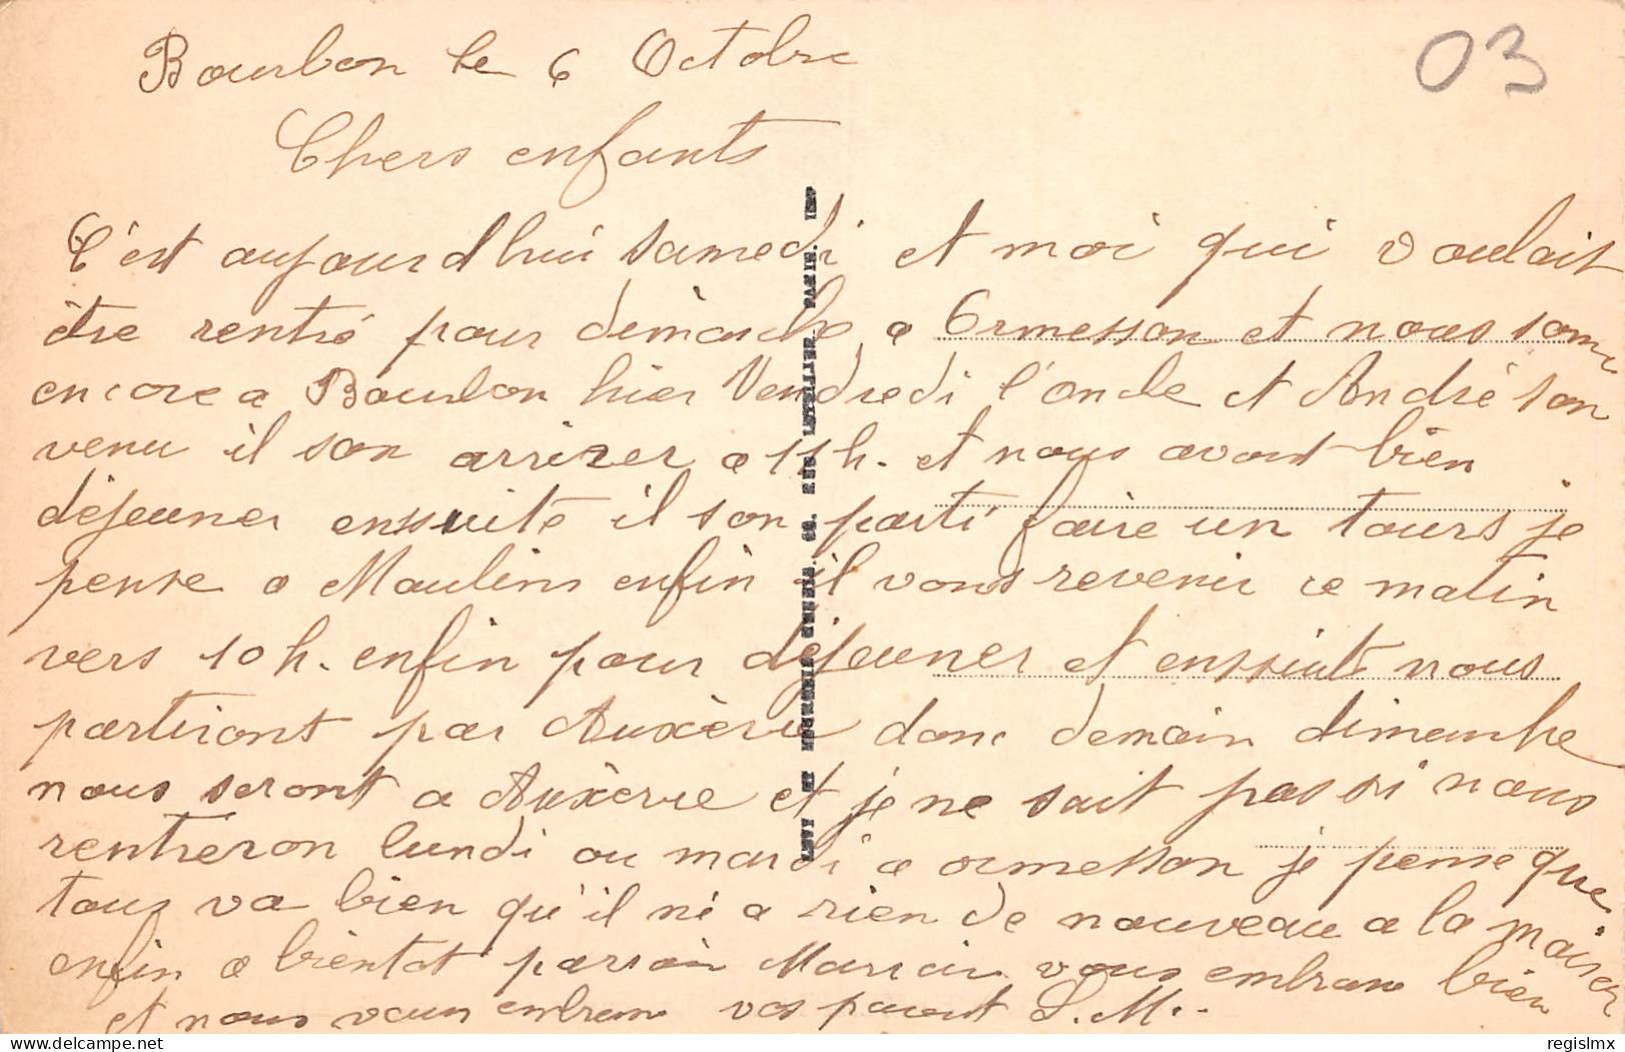 Bourbon le 6 Octobre
03
Chers enfants
C'est aujourd hui samedi et moi qui voulait
être rentré pour dimanche a Ormesson et nous somme
encore a Bourbon hier Vendredi l'oncle et André son
venu il son arriver a 11 h. et nous avont bien
déjeuner enssuite il son parti faire un tours je
pense a Moulins enfin il vons revenir ce matin
vers 10 h. enfin pour déjeuner et enssuite nous
partiront par Auxèrre donc demain dimanche
nous seront a Auxèrre et je ne sait pas si nous
rentreron lundi ou mardi a ormesson je pense que
tous va bien qu'il né a rien de nouveau a la maison
enfin a bientot parrain Marrain vous embrasse bien
et nous vous embrasse vos parent L. M.
delcampe.net
regislmx